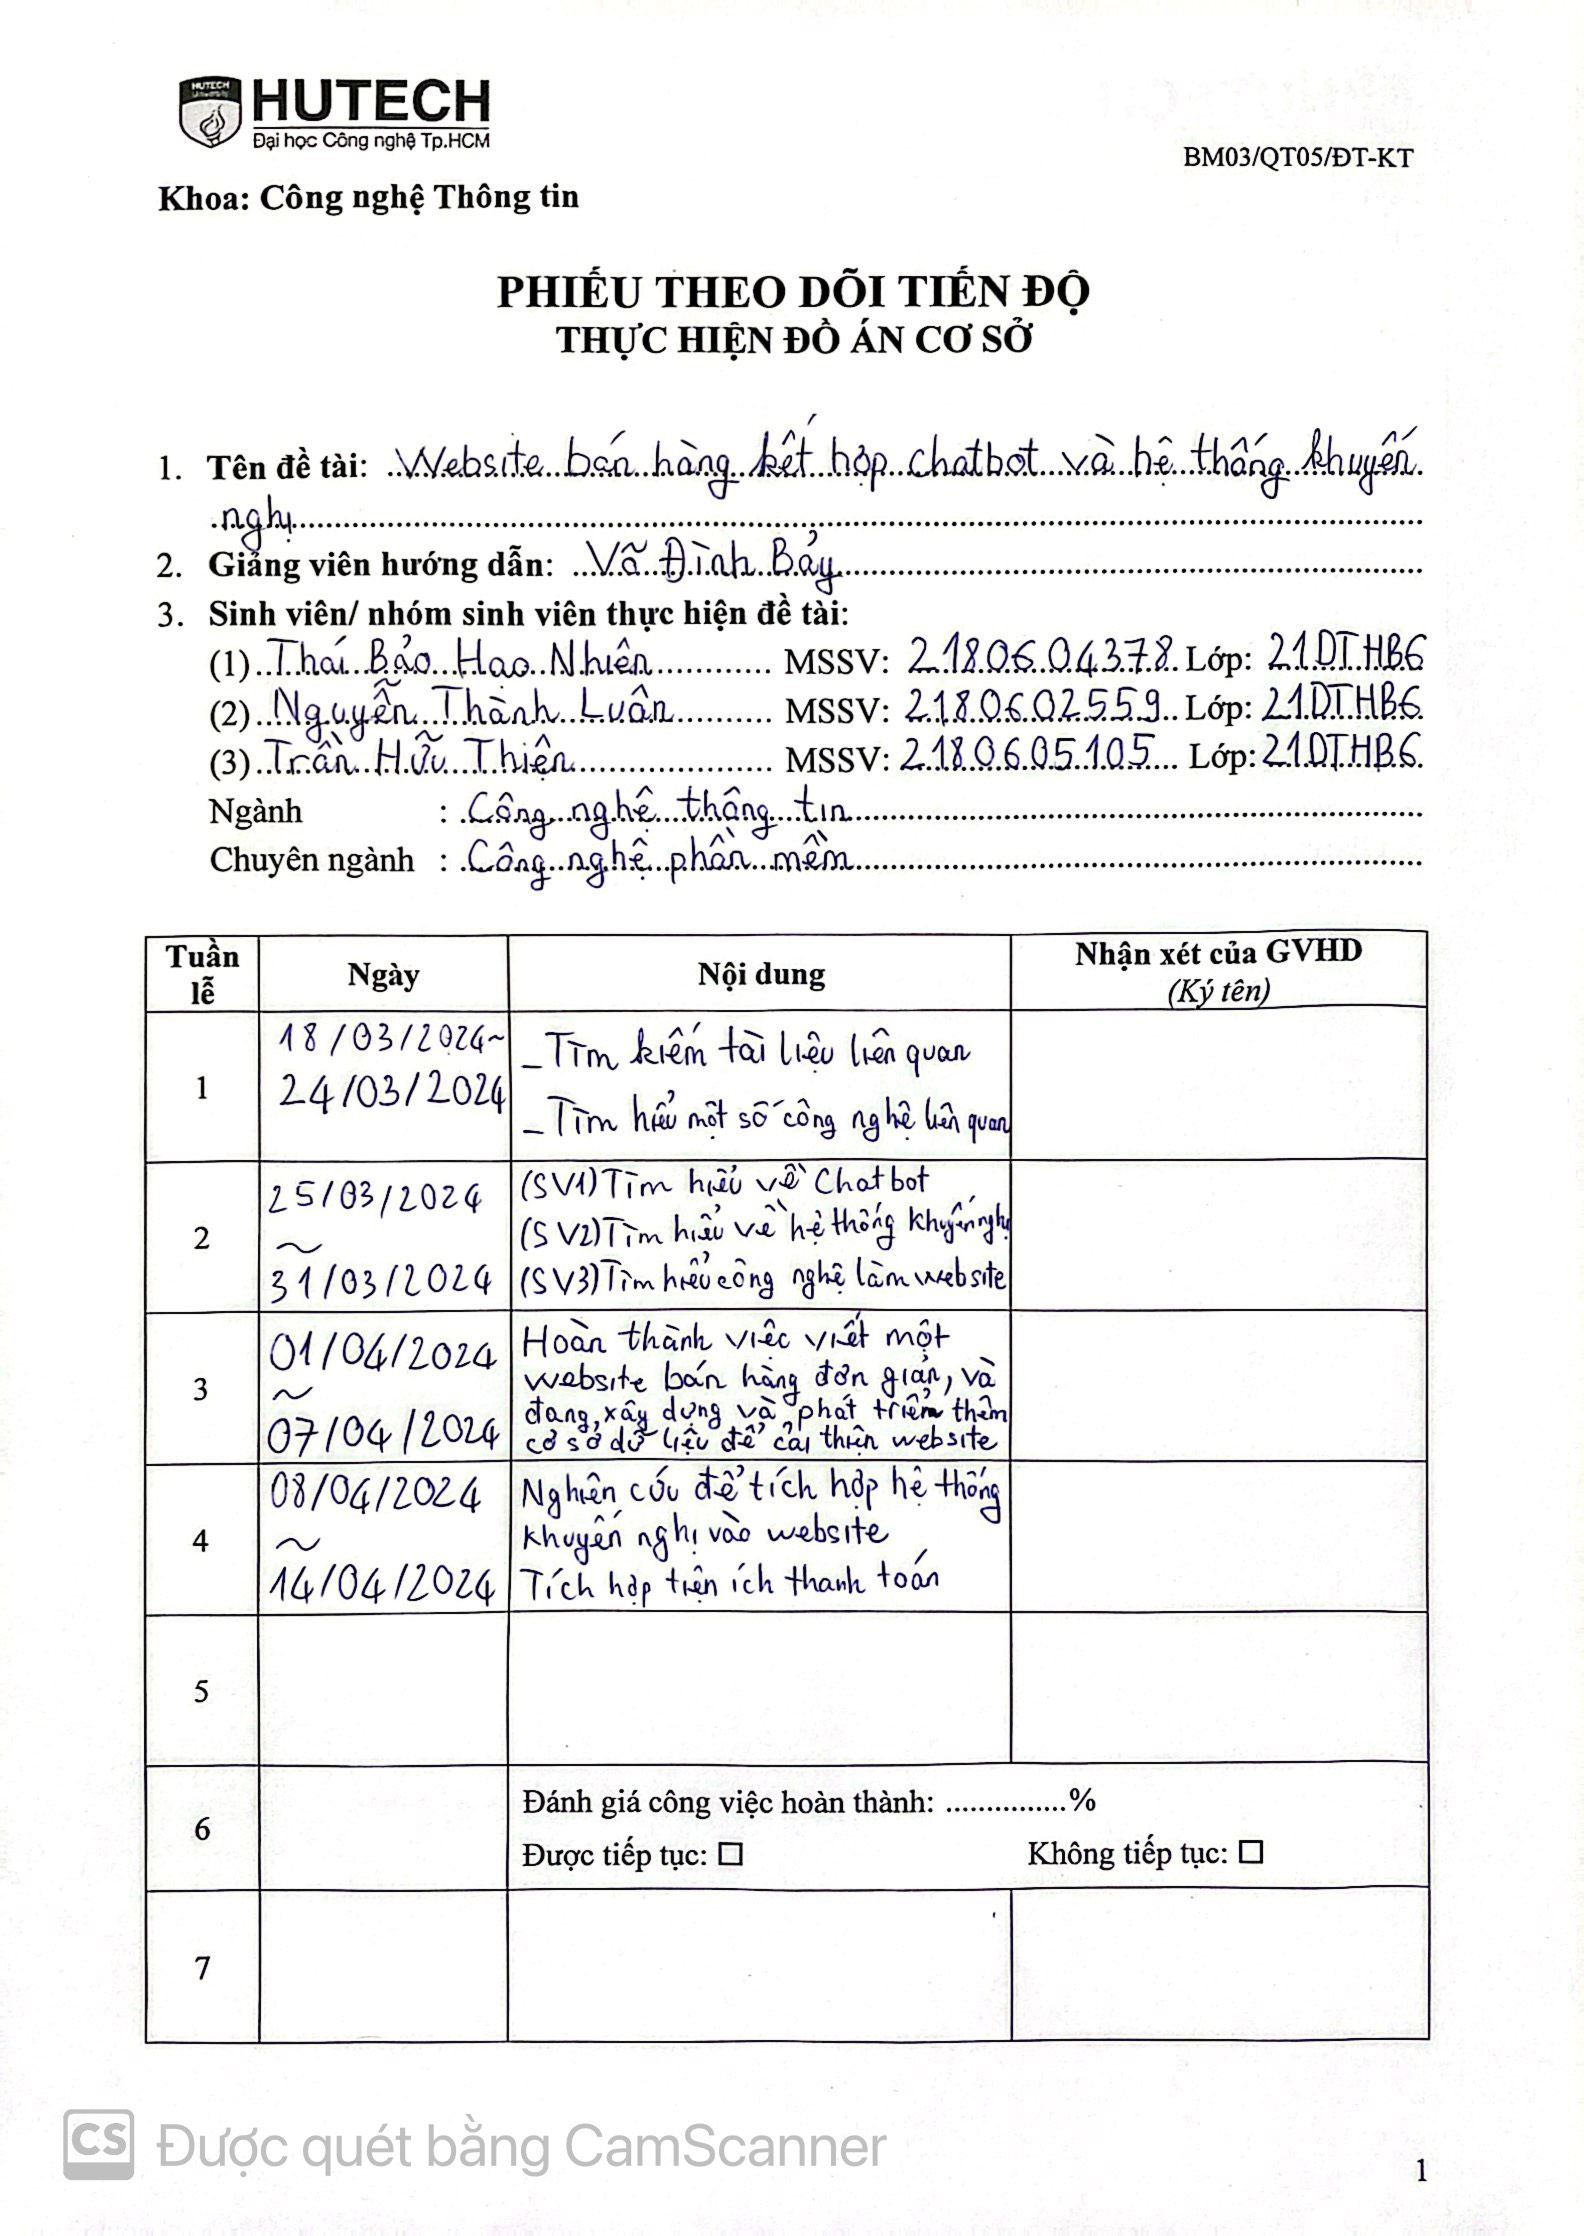 HUTECH
Đại học Công nghệ Tp.HCM
BM03/QT05/ĐT-KT
Khoa: Công nghệ Thông tin
PHIẾU THEO DÕI TIẾN ĐỘ
THỰC HIỆN ĐỒ ÁN CƠ SỞ
1. Tên đề tài: Website bán hàng kết hợp chatbot và hệ thống khuyến
nghị
2. Giảng viên hướng dẫn: Võ Đình Bảy
3. Sinh viên/ nhóm sinh viên thực hiện đề tài:
(1) Thái Bảo Hạo Nhiên MSSV: 2180604378 Lớp: 21DTHB6
(2) Nguyễn Thành Luân MSSV: 2180602559 Lớp: 21DTHB6
(3) Trần Hữu Thiện MSSV: 2180605105 Lớp: 21DTHB6
Ngành : Công nghệ thông tin
Chuyên ngành : Công nghệ phần mềm
Tuần
lễ
Ngày
Nội dung
Nhận xét của GVHD
(Ký tên)
1
18/03/2024~
24/03/2024
- Tìm kiếm tài liệu liên quan
- Tìm hiểu một số công nghệ liên quan
2
25/03/2024
~
31/03/2024
(SV1) Tìm hiểu về Chatbot
(SV2) Tìm hiểu về hệ thống khuyến nghị
(SV3) Tìm hiểu công nghệ làm website
3
01/04/2024
~
07/04/2024
Hoàn thành việc viết một
website bán hàng đơn giản, và
đang xây dựng và phát triển thêm
cơ sở dữ liệu để cải thiện website
4
08/04/2024
~
14/04/2024
Nghiên cứu để tích hợp hệ thống
khuyến nghị vào website
Tích hợp tiện ích thanh toán
5
6
Đánh giá công việc hoàn thành: ...............%
Được tiếp tục: ☐ Không tiếp tục: ☐
7
CS Được quét bằng CamScanner
1